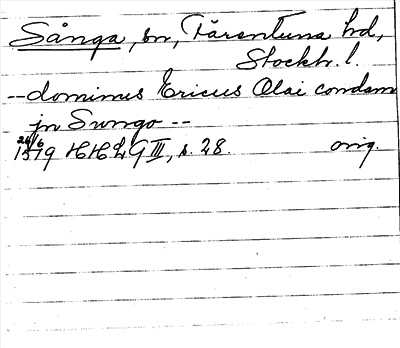 Sånga, sn, Färentuna hd,
Stockh. l.
-- dominus Ericus Olai condam
jn Sungo --
26/6
1519 HHLG III, s. 28. orig.